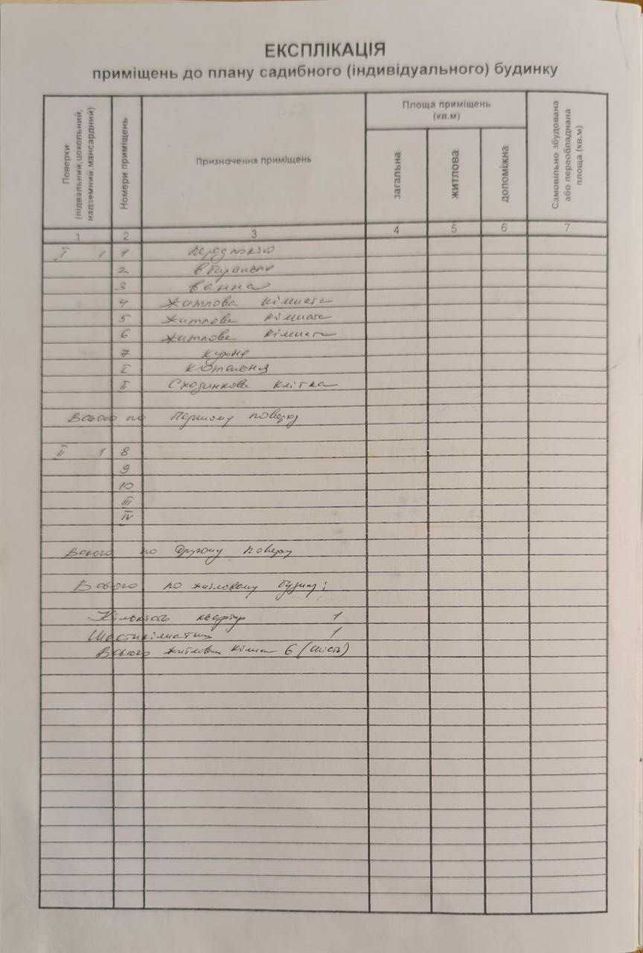 ЕКСПЛІКАЦІЯ
приміщень до плану садибного (індивідуального) будинку
Поверхи (підвальний,цокольний, надземний,мансардний)
Номери приміщень
Призначення приміщень
Площа приміщень (кв.м)
загальна
житлова
допоміжна
Самовільно збудована або переобладнана площа (кв.м)
1 2 3 4 5 6 7
I 1 1
2 вбиральня
3 Ванна
4 Житлова кімната
5 Житлова кімната
6 Житлова кімната
7 Кухня
I Котельня
II Сходинкова клітка
Всього по Першому поверху
II 1 8
9
10
III
IV
Всього по другому поверху
Всього по житловому будинку:
Кількість квартир 1
Шестикімнатних 1
Всього житлових кімнат 6 (шість)